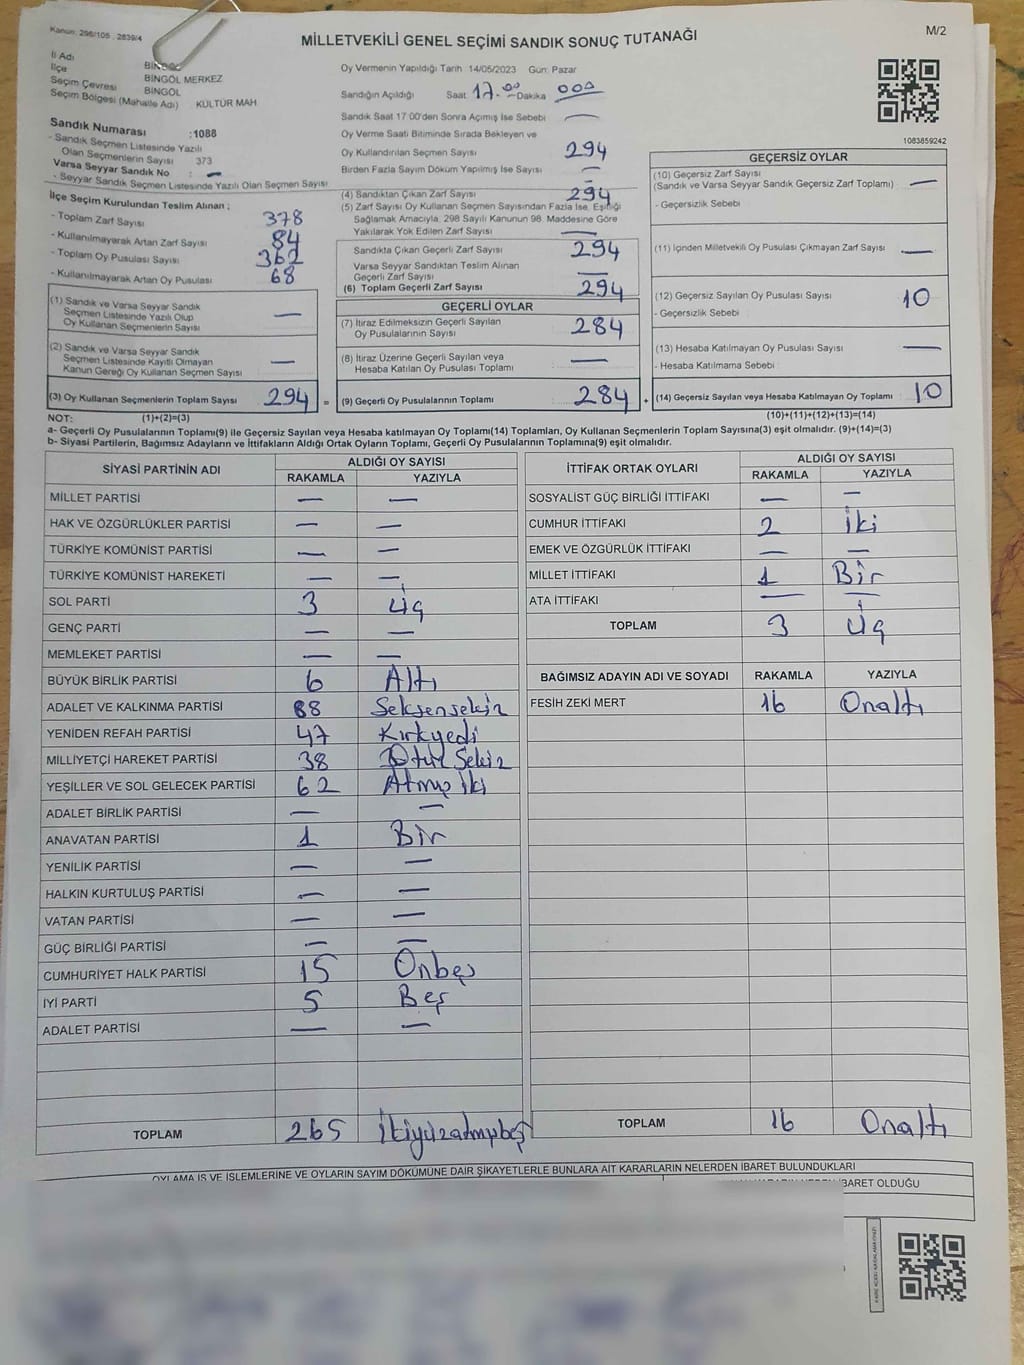 Kanun: 298/105 . 2839/4
M/2
MİLLETVEKİLİ GENEL SEÇİMİ SANDIK SONUÇ TUTANAĞI
İl Adı BİNGÖL
İlçe BİNGÖL MERKEZ
Seçim Çevresi BİNGÖL
Seçim Bölgesi (Mahalle Adı) KÜLTÜR MAH
Sandık Numarası :1088
- Sandık Seçmen Listesinde Yazılı
Olan Seçmenlerin Sayısı 373
Varsa Seyyar Sandık No : —
- Seyyar Sandık Seçmen Listesinde Yazılı Olan Seçmen Sayısı
İlçe Seçim Kurulundan Teslim Alınan ;
- Toplam Zarf Sayısı 378
- Kullanılmayarak Artan Zarf Sayısı 84
- Toplam Oy Pusulası Sayısı 362
- Kullanılmayarak Artan Oy Pusulası 68
(1) Sandık ve Varsa Seyyar Sandık
Seçmen Listesinde Yazılı Olup
Oy Kullanan Seçmenlerin Sayısı —
(2) Sandık ve Varsa Seyyar Sandık
Seçmen Listesinde Kayıtlı Olmayan
Kanun Gereği Oy Kullanan Seçmen Sayısı —
(3) Oy Kullanan Seçmenlerin Toplam Sayısı 294 =
Oy Vermenin Yapıldığı Tarih 14/05/2023 Gün: Pazar
Sandığın Açıldığı Saat 17.00 Dakika 000
Sandık Saat 17:00'den Sonra Açımış İse Sebebi —
Oy Verme Saati Bitiminde Sırada Bekleyen ve
Oy Kullandırılan Seçmen Sayısı 294
Birden Fazla Sayım Döküm Yapılmış İse Sayısı —
(4) Sandıktan Çıkan Zarf Sayısı 294
(5) Zarf Sayısı Oy Kullanan Seçmen Sayısından Fazla İse, Eşitliği
Sağlamak Amacıyla, 298 Sayılı Kanunun 98. Maddesine Göre
Yakılarak Yok Edilen Zarf Sayısı —
Sandıkta Çıkan Geçerli Zarf Sayısı 294
Varsa Seyyar Sandıktan Teslim Alınan
Geçerli Zarf Sayısı —
(6) Toplam Geçerli Zarf Sayısı 294
GEÇERLİ OYLAR
(7) İtiraz Edilmeksizin Geçerli Sayılan
Oy Pusulalarının Sayısı 284
(8) İtiraz Üzerine Geçerli Sayılan veya
Hesaba Katılan Oy Pusulası Toplamı —
(9) Geçerli Oy Pusulalarının Toplamı 284 +
1083859242
GEÇERSİZ OYLAR
(10) Geçersiz Zarf Sayısı
(Sandık ve Varsa Seyyar Sandık Geçersiz Zarf Toplamı) —
- Geçersizlik Sebebi
(11) İçinden Milletvekili Oy Pusulası Çıkmayan Zarf Sayısı —
(12) Geçersiz Sayılan Oy Pusulası Sayısı 10
- Geçersizlik Sebebi
(13) Hesaba Katılmayan Oy Pusulası Sayısı —
- Hesaba Katılmama Sebebi
(14) Geçersiz Sayılan veya Hesaba Katılmayan Oy Toplamı : 10
NOT: (1)+(2)=(3) (10)+(11)+(12)+(13)=(14)
a- Geçerli Oy Pusulalarının Toplamı(9) ile Geçersiz Sayılan veya Hesaba katılmayan Oy Toplamı(14) Toplamları, Oy Kullanan Seçmenlerin Toplam Sayısına(3) eşit olmalıdır. (9)+(14)=(3)
b- Siyasi Partilerin, Bağımsız Adayların ve İttifakların Aldığı Ortak Oyların Toplamı, Geçerli Oy Pusulalarının Toplamına(9) eşit olmalıdır.
SİYASİ PARTİNİN ADI ALDIĞI OY SAYISI
RAKAMLA YAZIYLA
MİLLET PARTİSİ — —
HAK VE ÖZGÜRLÜKLER PARTİSİ — —
TÜRKİYE KOMÜNİST PARTİSİ — —
TÜRKİYE KOMÜNİST HAREKETİ — —
SOL PARTİ 3 üç
GENÇ PARTİ — —
MEMLEKET PARTİSİ — —
BÜYÜK BİRLİK PARTİSİ 6 Altı
ADALET VE KALKINMA PARTİSİ 88 Seksensekiz
YENİDEN REFAH PARTİSİ 47 Kırkyedi
MİLLİYETÇİ HAREKET PARTİSİ 38 Otuz Sekiz
YEŞİLLER VE SOL GELECEK PARTİSİ 62 Atmış iki
ADALET BİRLİK PARTİSİ — —
ANAVATAN PARTİSİ 1 Bir
YENİLİK PARTİSİ — —
HALKIN KURTULUŞ PARTİSİ — —
VATAN PARTİSİ — —
GÜÇ BİRLİĞİ PARTİSİ — —
CUMHURİYET HALK PARTİSİ 15 Onbeş
İYİ PARTİ 5 Beş
ADALET PARTİSİ — —
TOPLAM 265 ikiyüzatmışbeş
İTTİFAK ORTAK OYLARI ALDIĞI OY SAYISI
RAKAMLA YAZIYLA
SOSYALİST GÜÇ BİRLİĞİ İTTİFAKI — —
CUMHUR İTTİFAKI 2 iki
EMEK VE ÖZGÜRLÜK İTTİFAKI — —
MİLLET İTTİFAKI 1 Bir
ATA İTTİFAKI — —
TOPLAM 3 üç
BAĞIMSIZ ADAYIN ADI VE SOYADI RAKAMLA YAZIYLA
FESİH ZEKİ MERT 16 Onaltı
TOPLAM 16 Onaltı
OYLAMA İŞ VE İŞLEMLERİNE VE OYLARIN SAYIM DÖKÜMÜNE DAİR ŞİKAYETLERLE BUNLARA AİT KARARLARIN NELERDEN İBARET BULUNDUKLARI
İBARET OLDUĞU